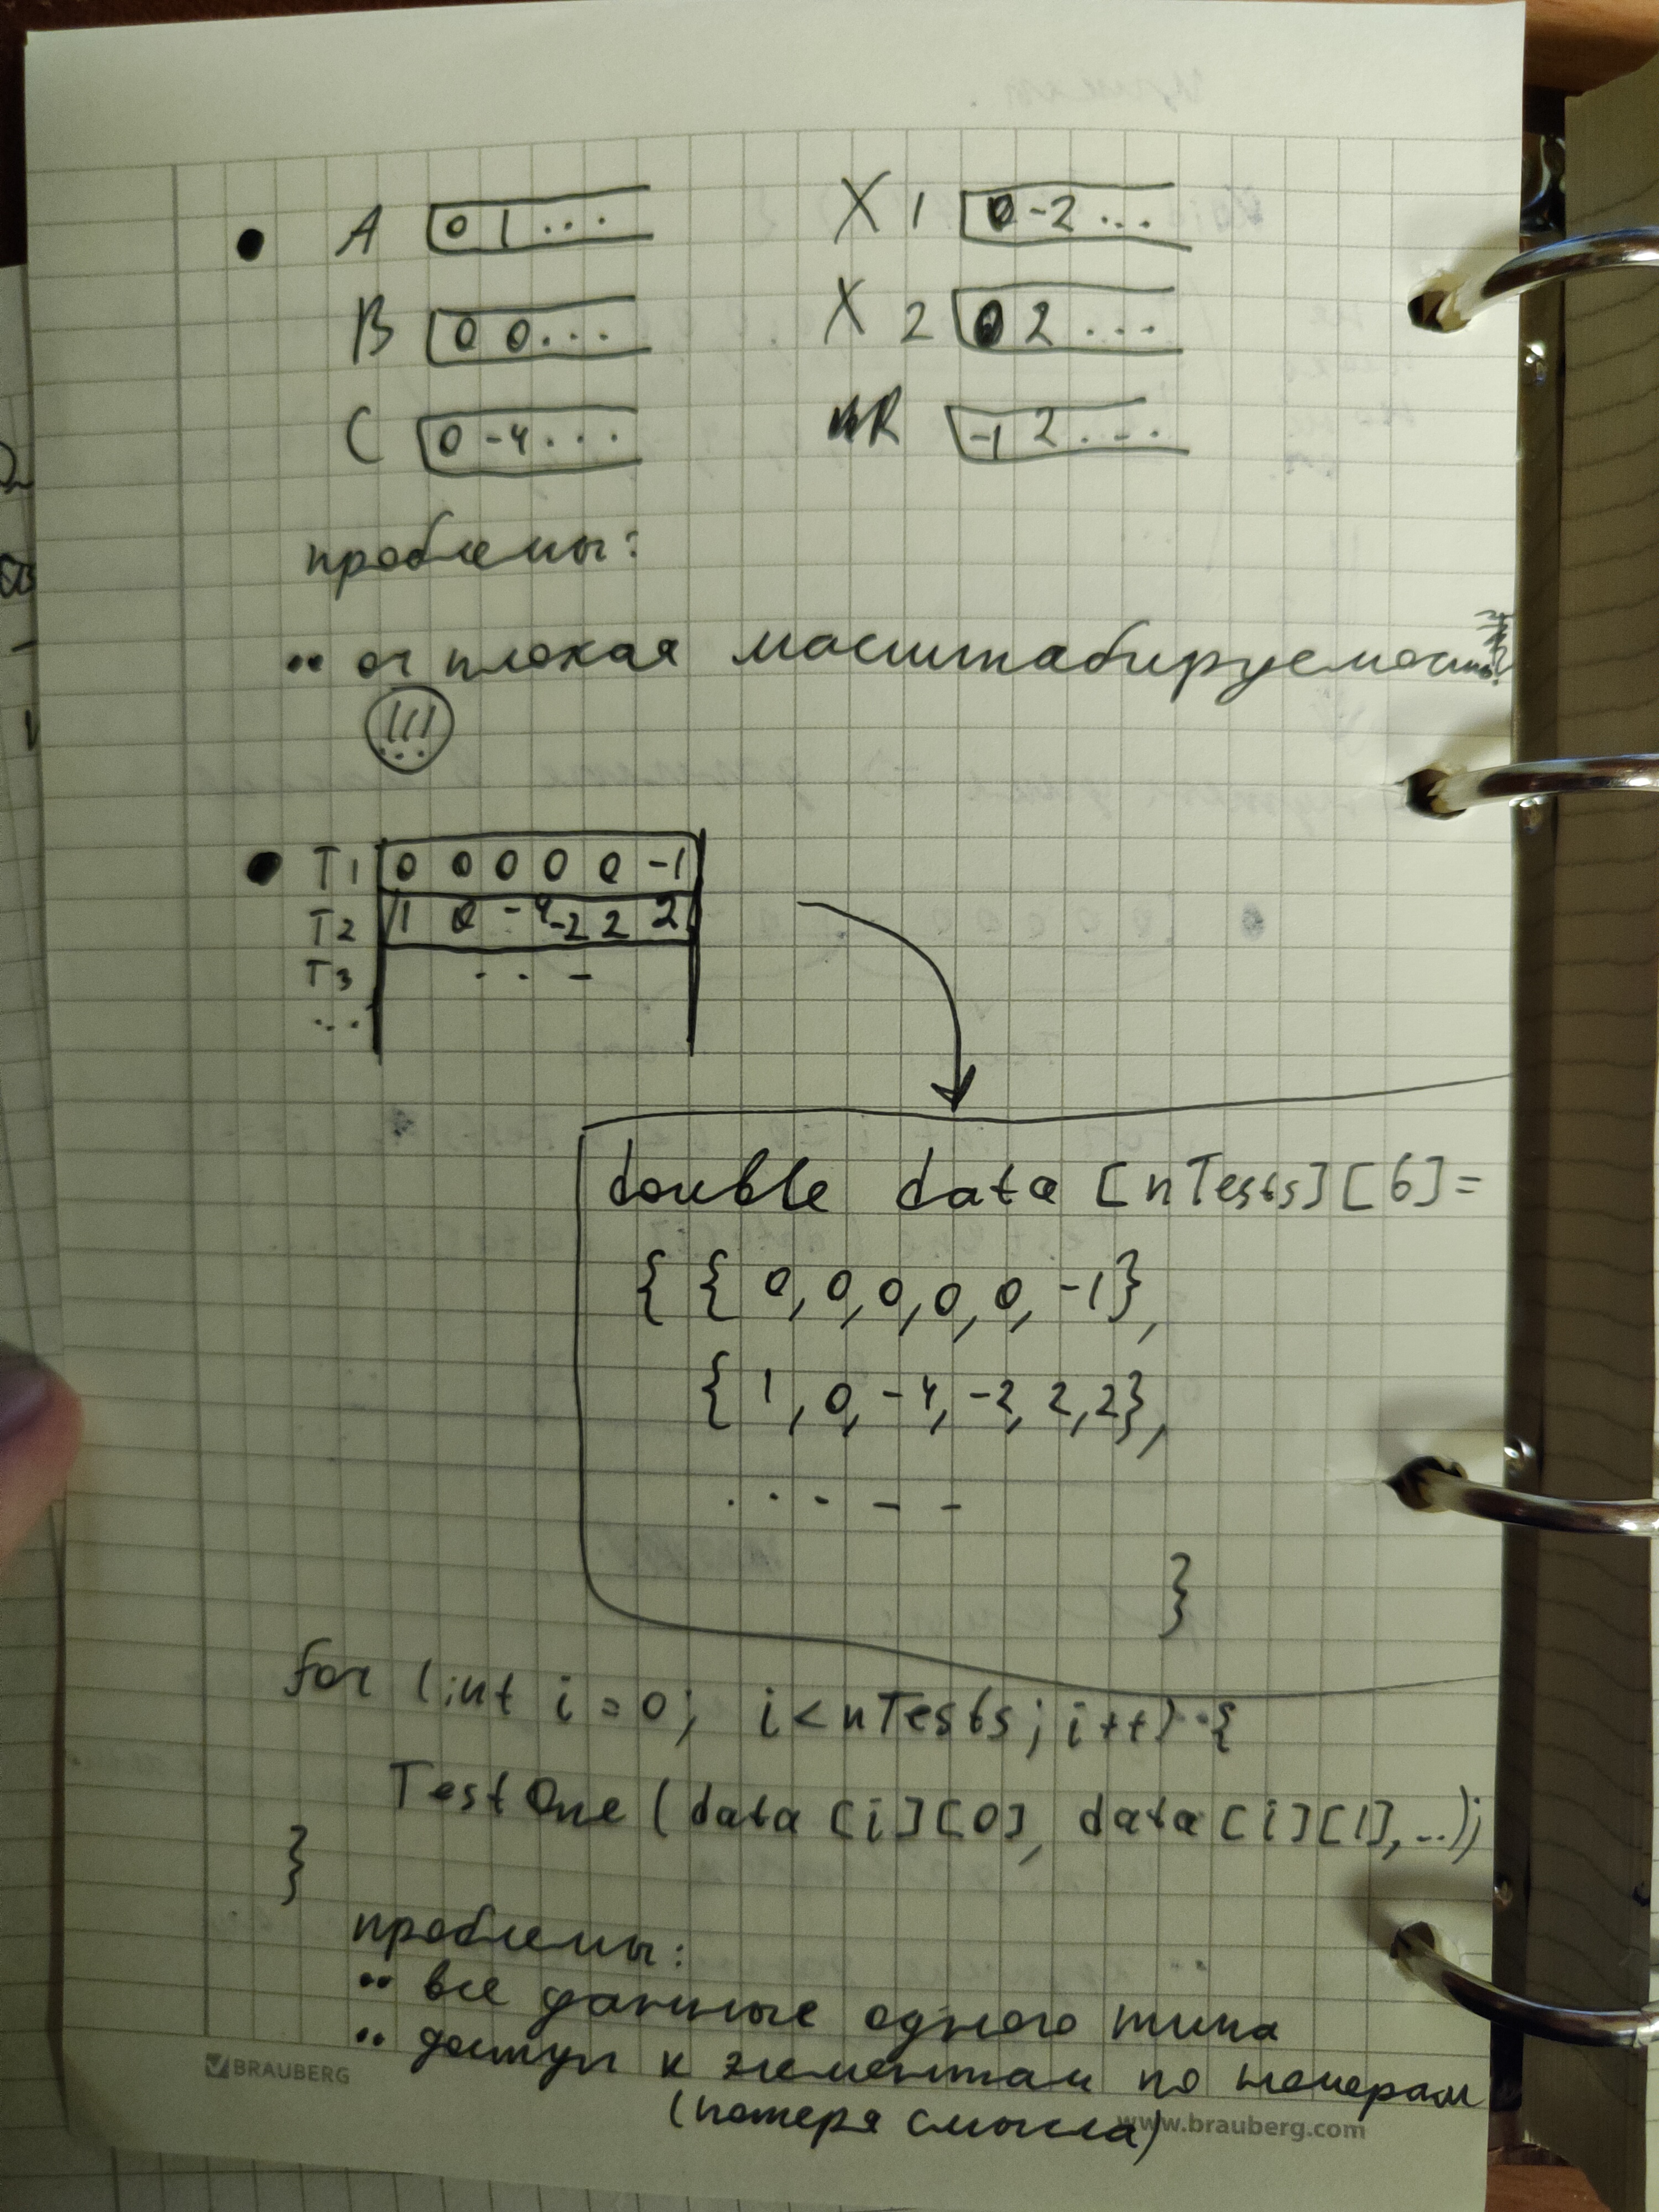 • A 0 1 ... X 1 0 -2 ...
B 0 0 ... X 2 0 2 ...
C 0 -4 ... NR -1 2 ...
проблемы:
•• оч плохая масштабируемость
!!!
• T1 0 0 0 0 0 -1
T2 1 0 -4 -2 2 2
T3 . . -
...
double data [nTests][6]=
{ { 0, 0, 0, 0, 0, -1},
{ 1, 0, -4, -2, 2, 2},
. . . - -
}
for (int i = 0; i < nTests; i++) {
TestOne (data [i][0], data [i][1], ...);
}
проблемы:
•• все данные одного типа
•• доступ к элементам по номерам
(потеря смысла)
BRAUBERG
www.brauberg.com